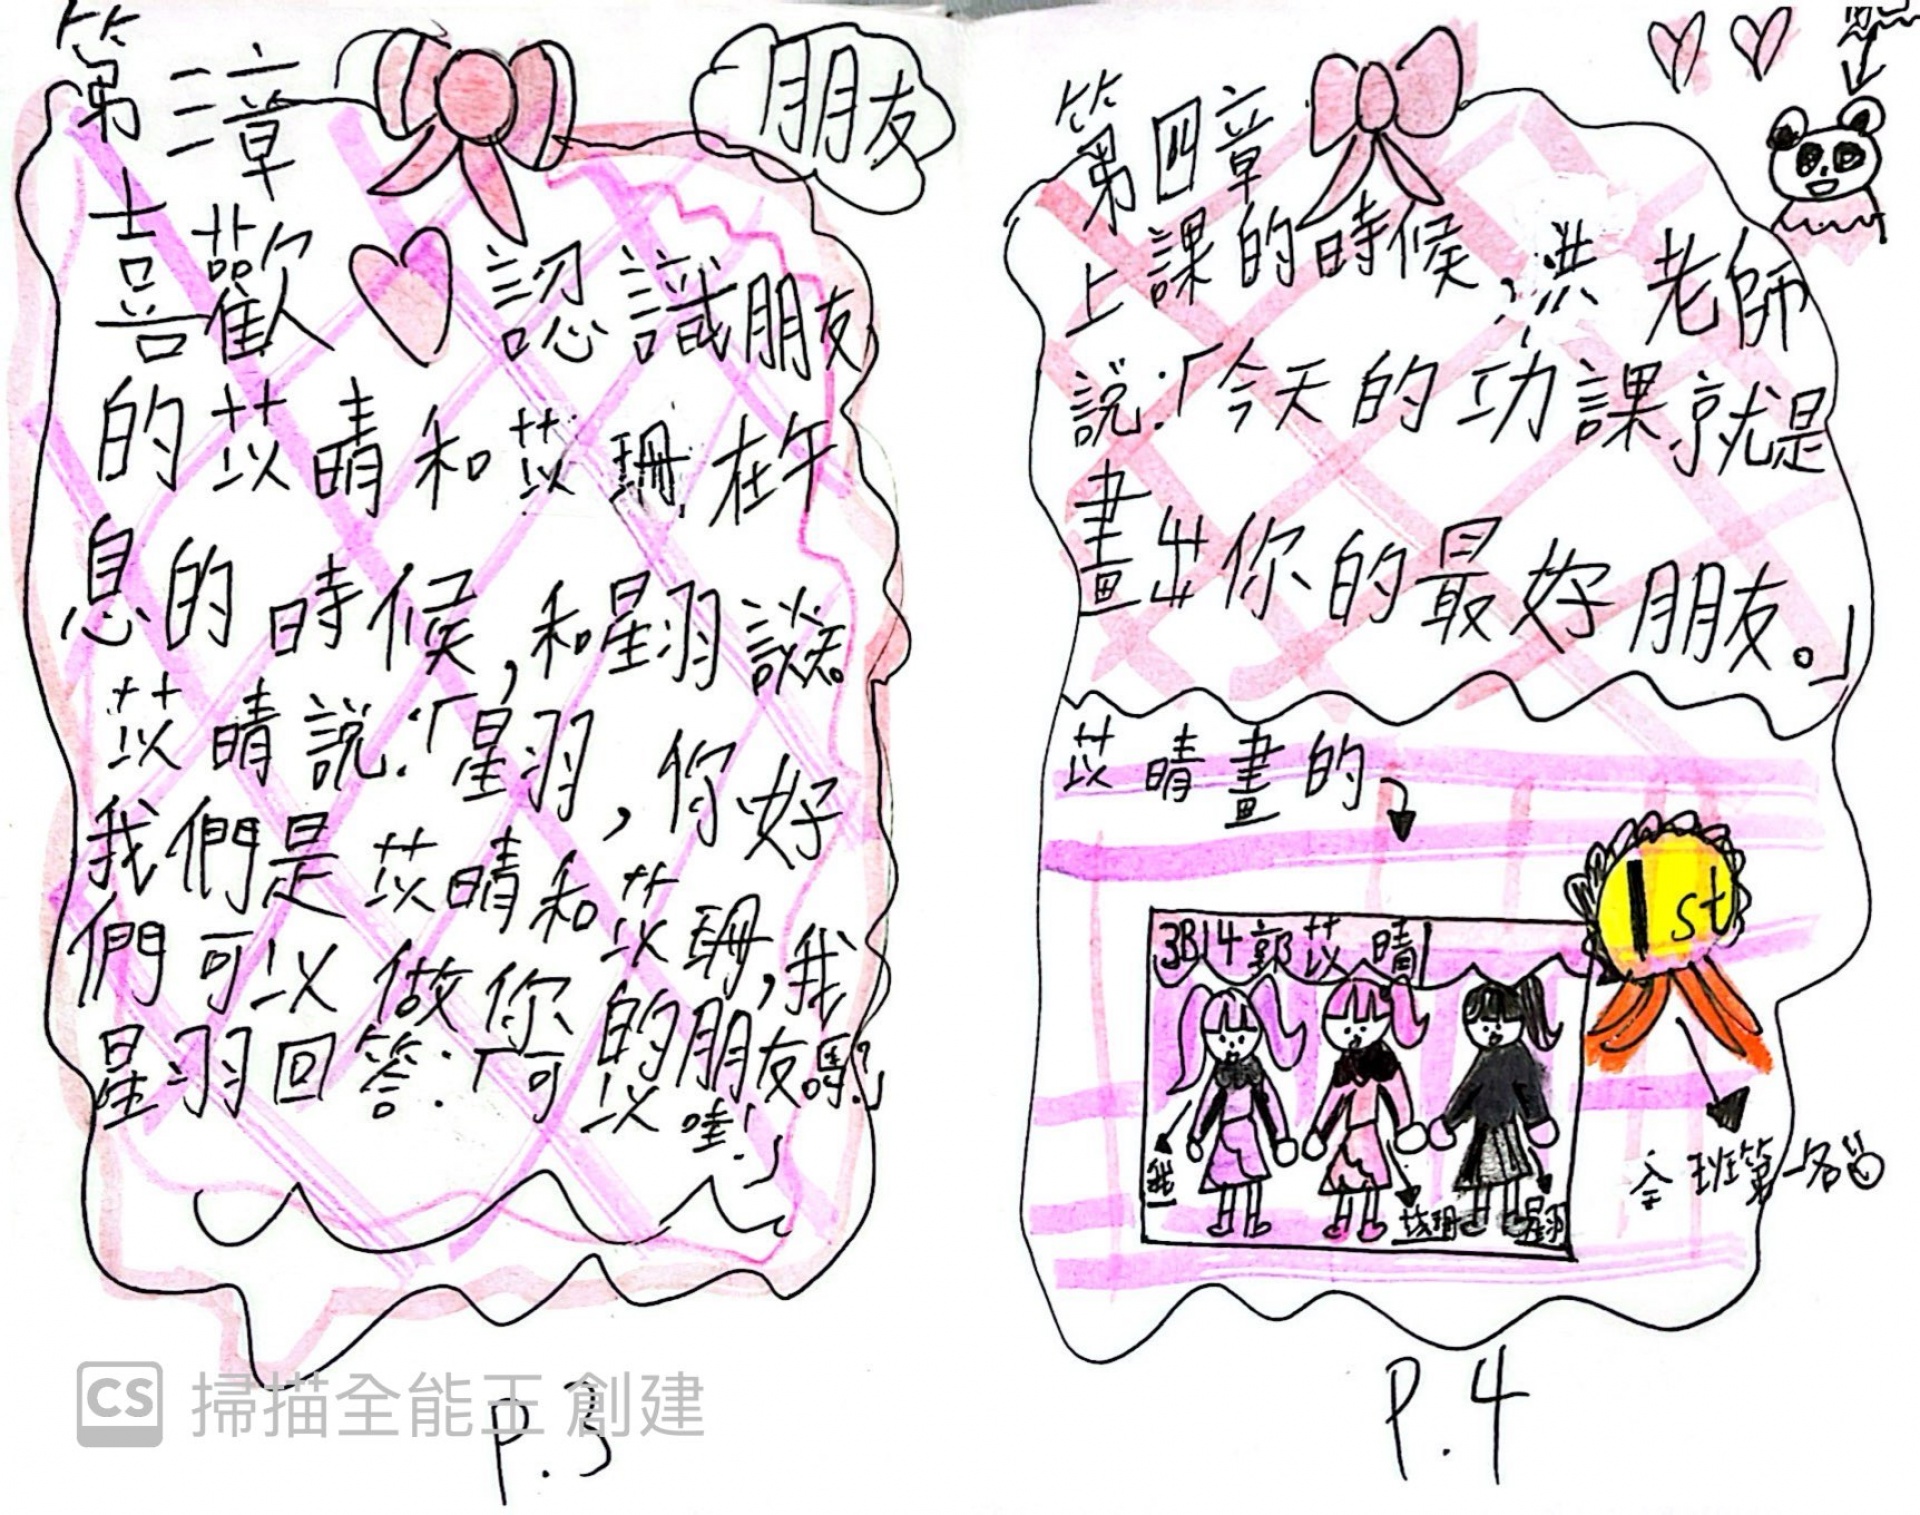 第三章
朋友
喜歡認識朋友
的苡晴和苡珊在午
息的時候,和星羽談
苡晴說:「星羽,你好
我們是苡晴和苡珊,我
們可以做你的朋友嗎?」
星羽回答:「可以哇!」
P.3
第四章
上課的時候,洪老師
說:「今天的功課就是
畫出你的最好朋友。」
苡晴畫的
1st
3B14郭苡晴
我
苡珊
星羽
全班第一名
P.4
CS 掃描全能王 創建